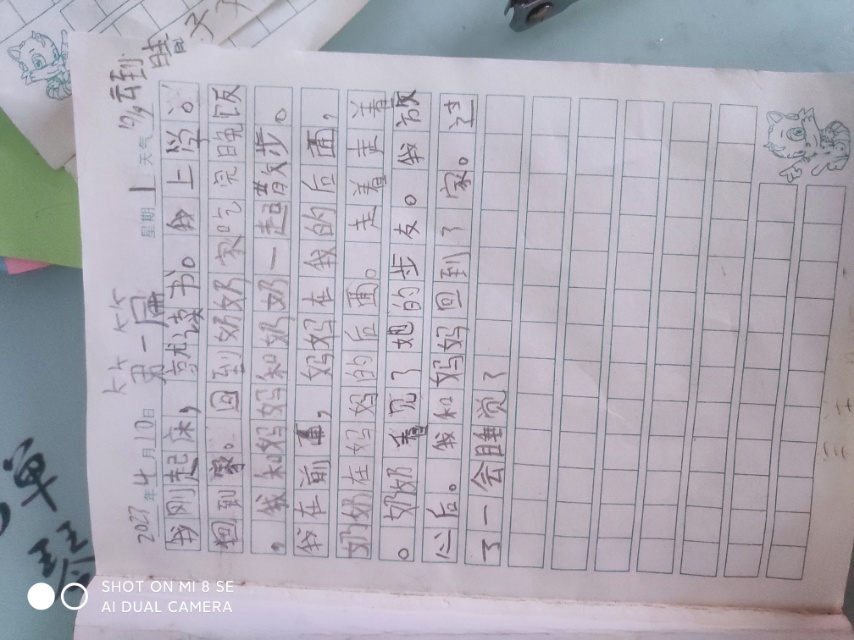 2023年4月10日 星期1 天气 到晴
我刚起床，就读书。我上学。
回到家。回到奶奶家吃完晚饭
，我和妈妈和奶奶一起散步。
我在前面，妈妈在我的后面，
奶奶在妈妈的后面。走着走着
。奶奶看见了她的步友。我散
心后。我和妈妈回到了家。过
了一会睡觉了
弹
琴
SHOT ON MI 8 SE
AI DUAL CAMERA